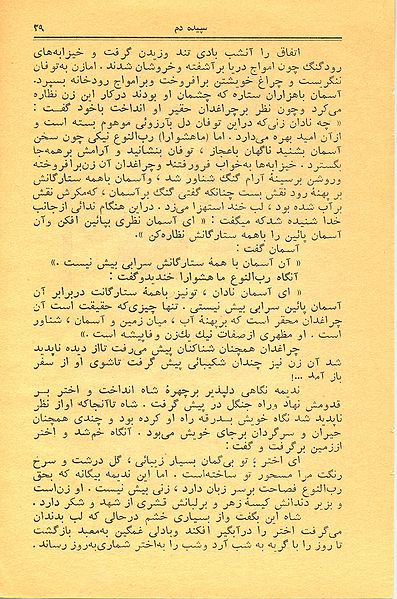 سپیده دم
۳۹
اتفاق را آنشب بادی تند وزیدن گرفت و خیزابه‌های
رودگنگ چون امواج دریا برآشفته وخروشان شدند . امازن به‌توفان
ننگریست و چراغ خویشتن برافروخت وبرامواج رودخانه بسپرد.
آسمان باهزاران ستاره که چشمان او بودند درکار این زن نظاره
می‌کرد وچون نظر برچراغدان حقیر او انداخت باخود گفت :
« چه نادان زنی‌که دراین توفان دل بآرزوئی موهوم بسته است و
ازآن امید بهره می‌دارد . اما (ماهشوارا) رب‌النوع نیکی چون سخن
آسمان بشنید ناگهان باعجاز ، توفان بنشانید و آرامش برهمه‌جا
بگسترد . خیزابه‌ها به‌خواب فرورفتند وچراغدان آن زن‌برافروخته
وروشن برسینهٔ آرام گنگ شناور شد ، وآسمان باهمه ستارگانش
بر پهنهٔ رود نقش بست چنانکه گفتی گنگ برآسمان ، که‌مکرش نقش
برآب شده بود ، لب خند استهزا می‌زد . دراین هنگام ندائی ازجانب
خدا شنیده شدکه میگفت : « ای آسمان نظری بپائین افکن وآن
آسمان پائین را باهمه ستارگانش نظاره‌کن ».
آسمان گفت :
« آن آسمان با همهٔ ستارگانش سرابی بیش نیست .»
آنگاه رب‌النوع ماهشوارا خندیدوگفت :
« ای آسمان نادان ، تونیز باهمهٔ ستارگانت دربرابر آن
آسمان پائین سرابی بیش نیستی . تنها چیزی‌که حقیقت است آن
چراغدان محقر است که برپهنهٔ آب ، میان زمین و آسمان ، شناور
است . او مظهری ازصفات نیك یك‌زن وفاپیشه است .»
چراغدان همچنان شناکنان پیش می‌رفت تااز دیده ناپدید
شد آن زن نیز چندان شکیبائی پیش گرفت تاشوی او از سفر
باز آمد ...!
ندیمه نگاهی دلپذیر برچهرهٔ شاه انداخت و اختر بر
قدومش نهاد وراه جنگل در پیش گرفت . شاه تاآنجاکه اواز نظر
ناپدید شد نگاه خویش بدرقه راه او کرده بود و چندی همچنان
حیران و سرگردان برجای خویش می‌بود . آنگاه خم‌شد و اختر
اززمین برگرفت و گفت :
ای اختر ؛ تو بی‌گمان بسیار زیبائی ، گل درشت و سرخ
رنگت مرا مسحور تو ساخته‌است . اما این ندیمه بیگانه که بحق
رب‌النوع فصاحت برسر زبان دارد ، زنی بیش نیست . او زن‌است
و بزیر دندانش کیسهٔ زهر و برلبانش قشری از شهد و شکر دارد .
شاه این بگفت واز بسیاری خشم درحالی که لب بدندان
می‌گرفت اختر را درآبگیر افکند وبادلی غمگین به‌معبد بازگشت
تا روز را باگریه به شب آرد وشب را به‌اختر شماری‌به‌روز رساند .